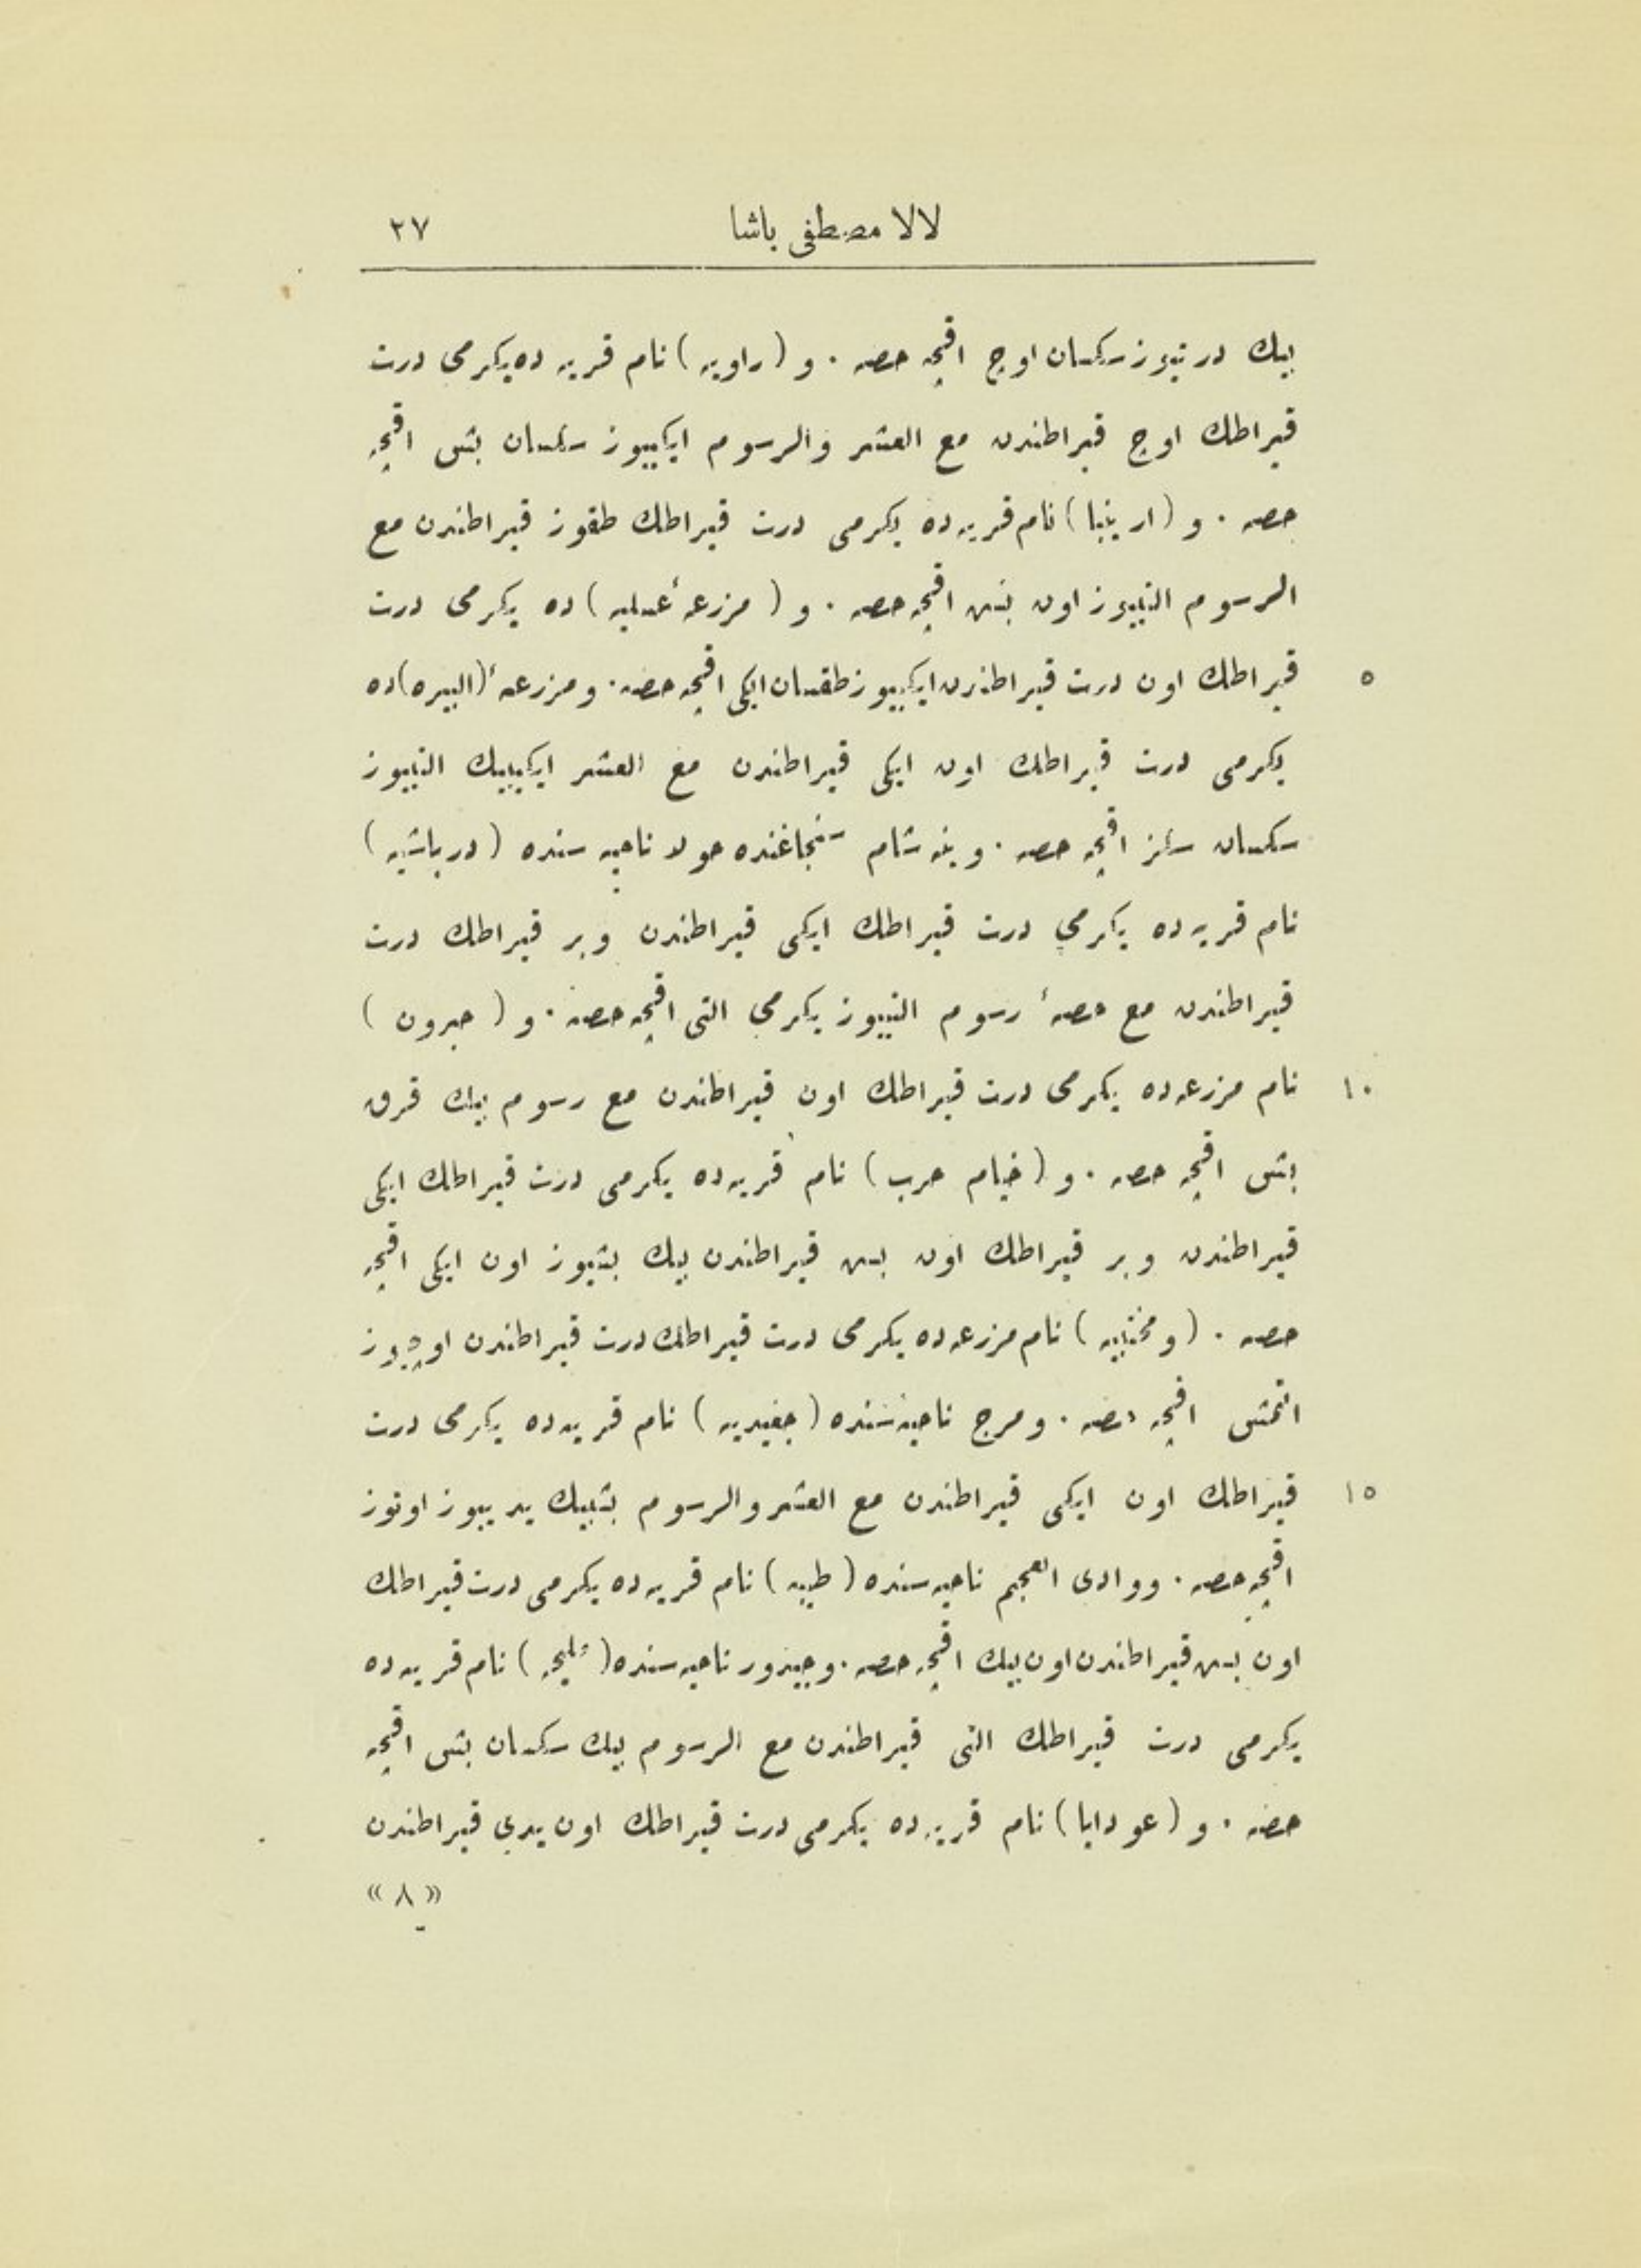 لالا مصطفى باشا ٢٧
بيك درتيوز سكسان اوچ اقچه حصه . و (راويه) نام قريه ده يكرمى درت
قيراطك اوچ قيراطندن مع العشر والرسوم ايكييوز سكسان بش اقچه
حصه . و (ارينبا) نام قريه ده يكرمى درت قيراطك طقوز قيراطندن مع
الرسوم التييوز اون بش اقچه حصه . و (مزرعهٔ عسليه) ده يكرمى درت
٥ قيراطك اون درت قيراطندن ايكييوز طقسان ايكى اقچه حصه . ومزرعهٔ (البيره) ده
يكرمى درت قيراطك اون ايكى قيراطندن مع العشر ايكيبيك التييوز
سكسان سكز اقچه حصه . وينه شام سنجاغنده حولا ناحيه سنده (درباشيه)
نام قريه ده يكرمى درت قيراطك ايكى قيراطندن وبر قيراطك درت
قيراطندن مع حصهٔ رسوم التييوز يكرمى التى اقچه حصه . و (جبرون)
١٠ نام مزرعه ده يكرمى درت قيراطك اون قيراطندن مع رسوم بيك قرق
بش اقچه حصه . و (خيام حرب) نام قريه ده يكرمى درت قيراطك ايكى
قيراطندن وبر قيراطك اون بش قيراطندن بيك بشيوز اون ايكى اقچه
حصه . نام مزرعه ده يكرمى درت قيراطك درت قيراطندن اوچيوز
التمش اقچه حصه . ومرج ناحيه سنده (جفيديه) نام قريه ده يكرمى درت
١٥ قيراطك اون ايكى قيراطندن مع العشر والرسوم بشبيك يدييوز اوتوز
اقچه حصه . ووادى العجم ناحيه سنده (طيبه) نام قريه ده يكرمى درت قيراطك
اون بش قيراطندن اون بيك اقچه حصه . وجيدور ناحيه سنده نام قريه ده
يكرمى درت قيراطك التى قيراطندن مع الرسوم بيك سكسان بش اقچه
حصه . و (عودايا) نام قريه ده يكرمى درت قيراطك اون يدى قيراطندن
«٨»